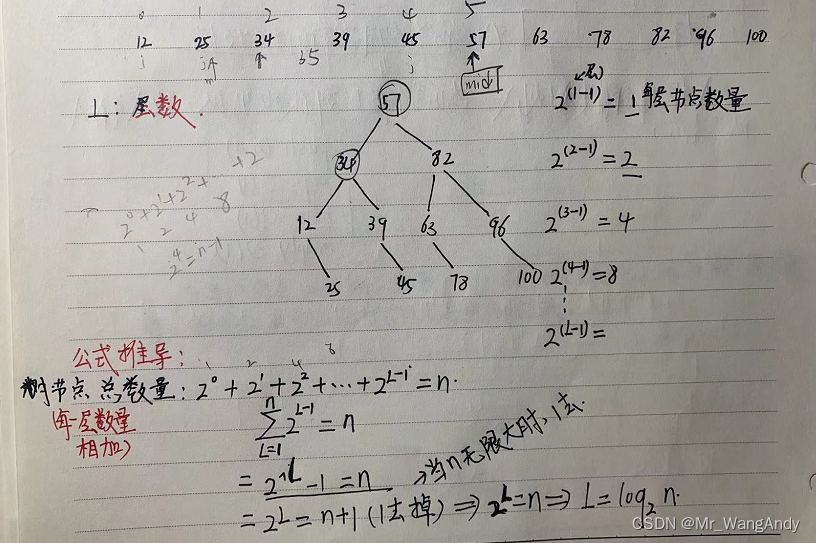 0 1 2 3 4 5
12 25 34 39 45 57 63 78 82 96 100
j j j
65
mid
L: 层数.
57
34 82
12 39 63 96
25 45 78 100
2^(1-1) = 1 每层节点数量
2^(2-1) = 2
2^(3-1) = 4
2^(4-1) = 8
2^(L-1) =
2^0+2^1+2^2+...+2
1 2 4 8
2^4=n-1
公式推导:
1 2 4 8
节点总数量: 2^0 + 2^1 + 2^2 + ... + 2^(L-1) = n.
(每一层数量
相加)
n
∑ 2^(L-1) = n
L=1
= 2^L - 1 = n → 当n无限大时, 1去.
= 2^L = n+1 (1去掉) ⇒ 2^L = n ⇒ L = log₂ n.
CSDN @Mr_WangAndy